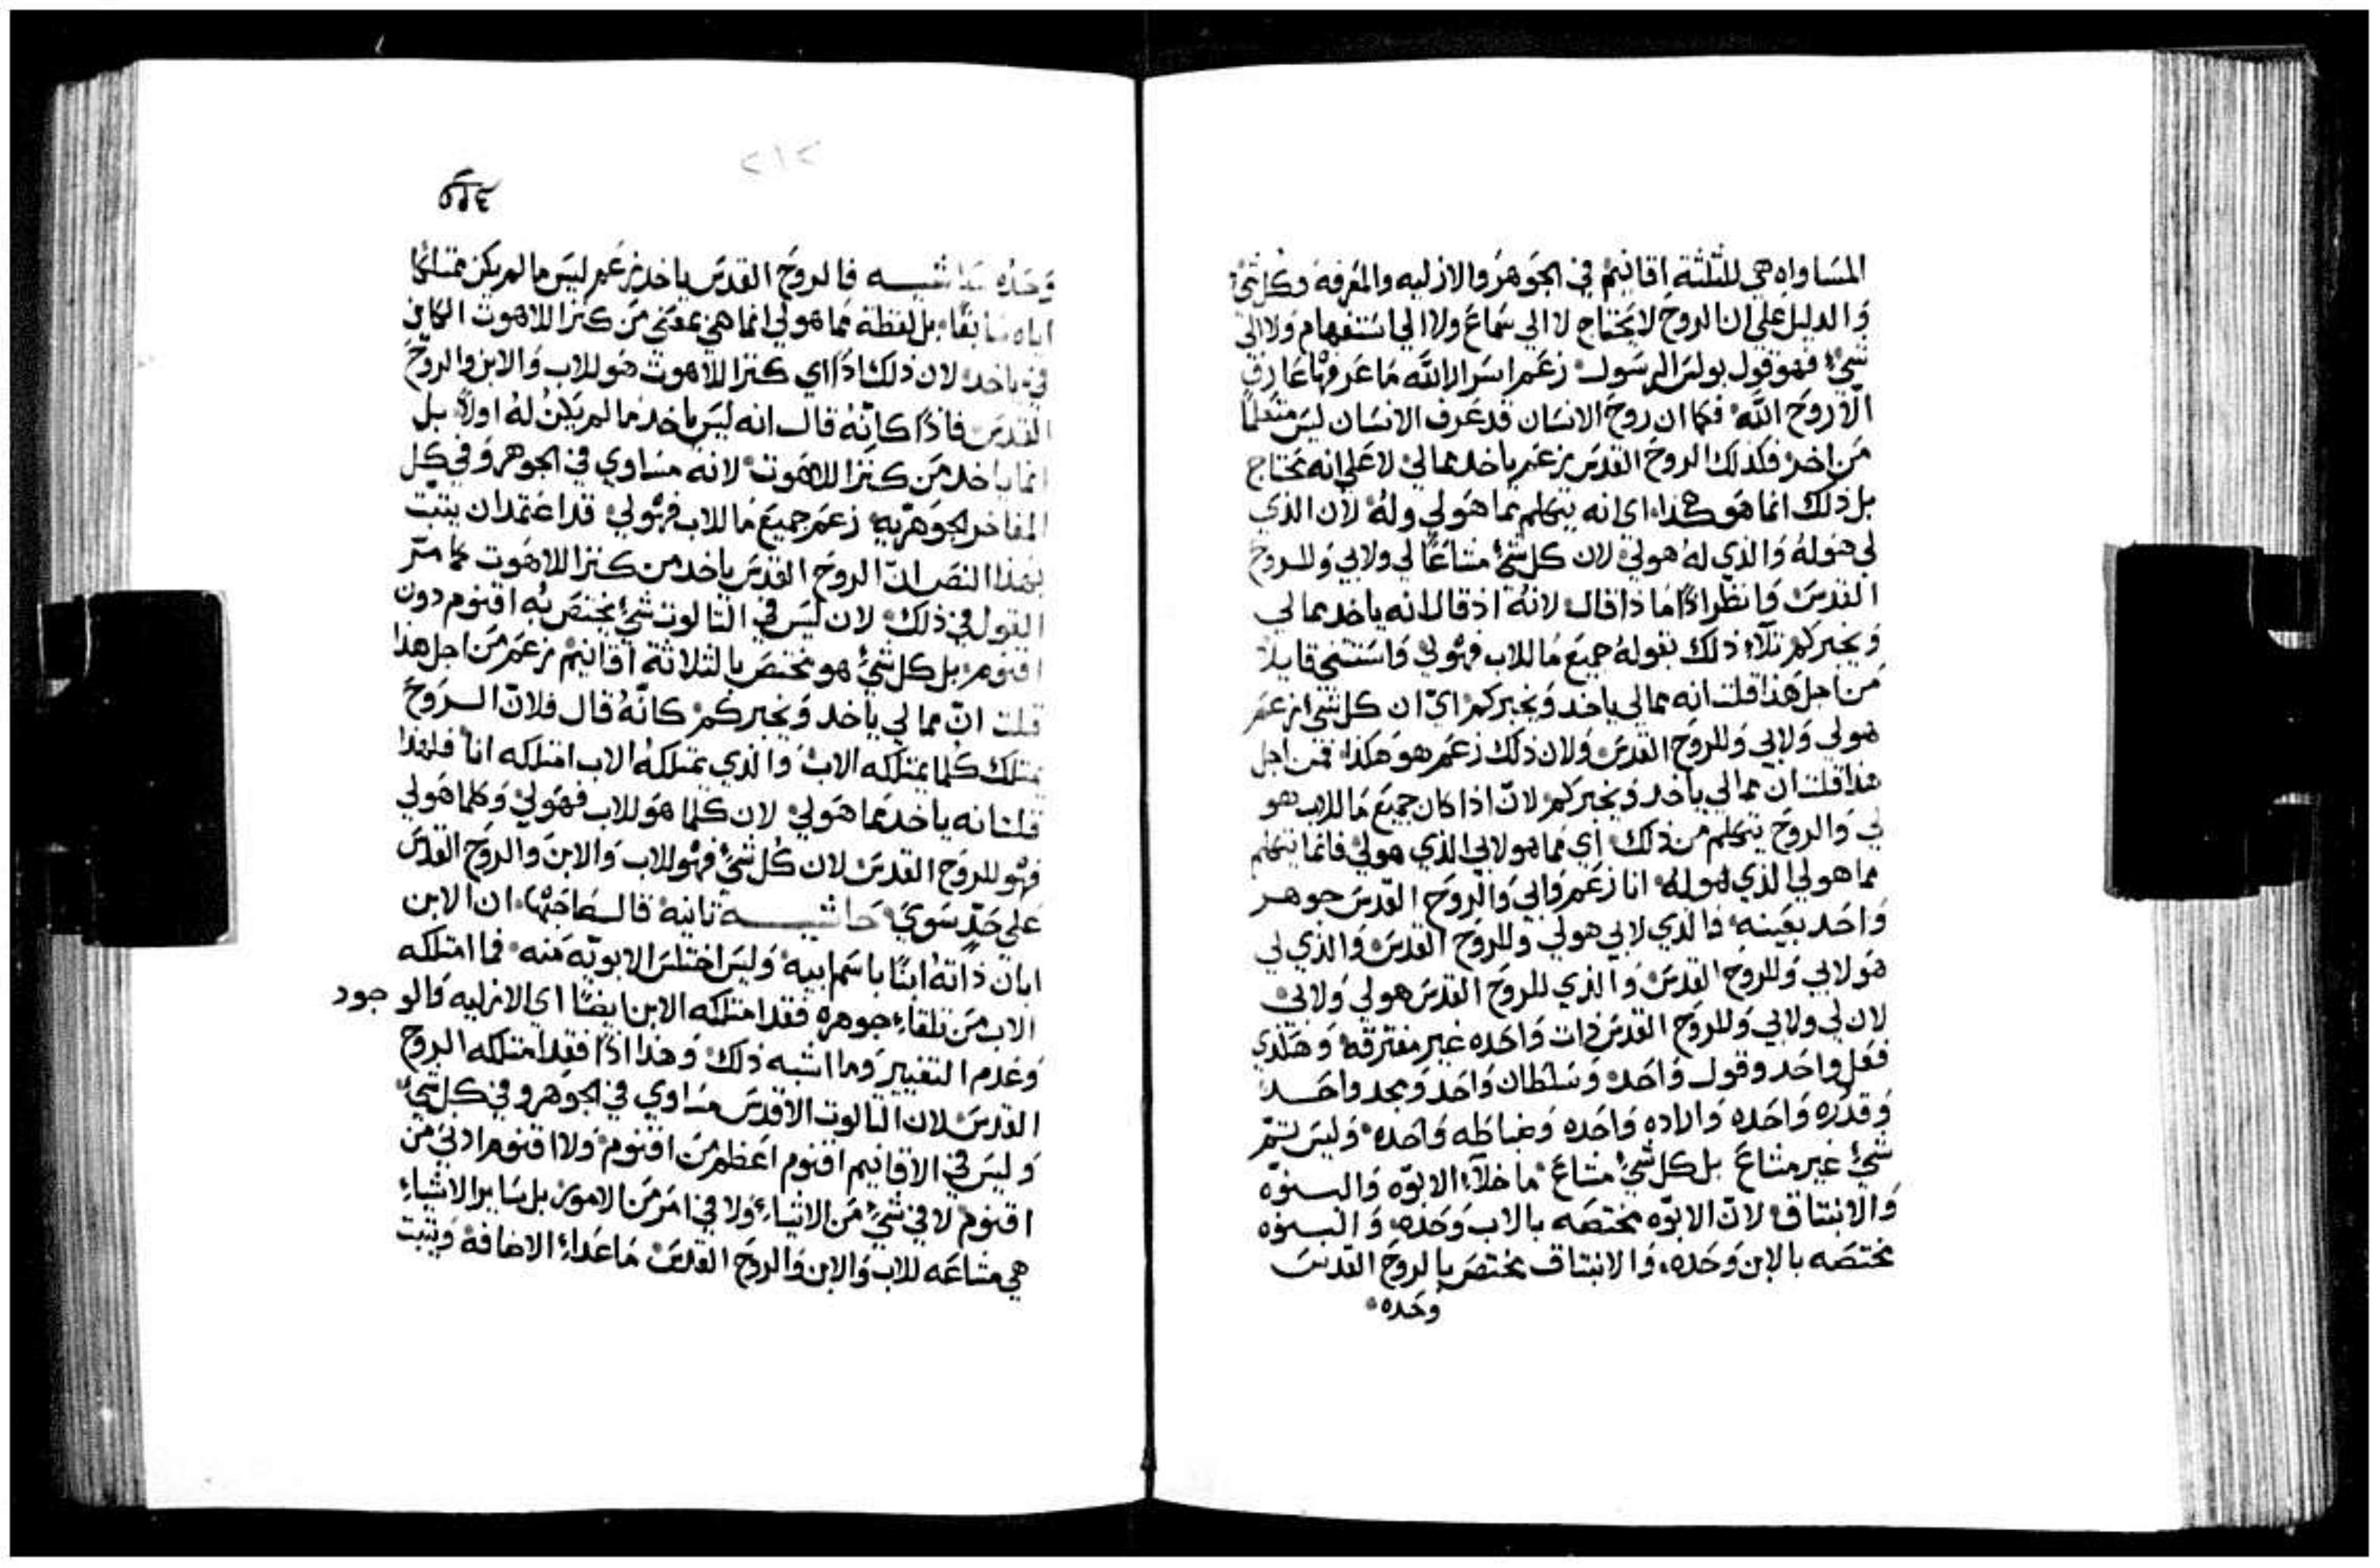 المساواه هي للثلثة اقانيم في الجوهر والازليه والمعرفة وكل شئ
والدليل علي ان الروح لا يحتاج لا الي سماع ولا الي استفهام ولا الي
شئ فهو قول بولس الرسول زعم اسرار الله ما عرفها عارف
الا روح الله فكما ان روح الانسان قد عرف الانسان ليس متعلما
من اخر فكذلك الروح القدس زعم ياخد مما لي لا علي انه يحتاج
بل ذلك انما هو هكذا اي انه يتكلم مما هو لي وله لان الذي
لي هو له والذي له هو لي لان كل شئ مشاعا لي ولابي وللروح
القدس وانظر اذا ماذا قال لانه اذ قال انه ياخد مما لي
ويخبركم تلاء ذلك بقوله جميع ما للاب فهو لي واستثنى قايلا
من اجل هذا قلت انه مما لي ياخد ويخبركم اي ان كل شئ زعم
هو لي ولابي وللروح القدس ولان ذلك زعم هو هكذا فمن اجل
هذا قلت ان مما لي ياخد ويخبركم لان اذا كان جميع ما للاب هو
لي والروح يتكلم من ذلك اي مما هو لابي الذي هو لي فانما يتكلم
مما هو لي الذي هو له انا زعم وابي والروح القدس جوهر
واحد بعينه فالذي لابي هو لي وللروح القدس والذي لي
هو لابي وللروح القدس والذي للروح القدس هو لي ولابي
لان لي ولابي وللروح القدس ذات واحده غير مفترقة وهكذي
فعل واحد وقول واحد وسلطان واحد ومجد واحد
وقدره واحده واراده واحده وضباطه واحده وليس ثم
شئ غير مشاع بل كل شئ مشاع ما خلاء الابوه والبنوه
والانبثاق لان الابوه مختصه بالاب وحده والبنوه
مختصه بالابن وحده والانبثاق مختص بالروح القدس
وحده
٢١٢
وحده حاشيه فالروح القدس ياخد زعم ليس ما لم يكن ممتلكا
اياه سابقا بل لفظة مما هو لي انما هي بمعني من كنز اللاهوت الكاين
في ياخد لان ذلك اذا اي كنز اللاهوت هو للاب والابن والروح
القدس فاذا كانه قال انه ليس ياخد ما لم يكن له اولا بل
انما ياخد من كنز اللاهوت لانه مساوي في الجوهر وفي كل
المفاخر الجوهريه زعم جميع ما للاب فهو لي قد اعتمد ان يثبت
بهذا النص ان الروح القدس ياخد من كنز اللاهوت كما مر
القول في ذلك لان ليس في الثالوث شئ يختص به اقنوم دون
اقنوم بل كل شئ هو مختص بالثلاثة اقانيم زعم من اجل هذا
قلت ان مما لي ياخد ويخبركم كانه قال فلان الروح
يمتلك كلما يمتلكه الاب والذي يمتلكه الاب امتلكه انا فلهذا
قلت انه ياخد مما هو لي لان كلما هو للاب فهو لي وكلما هو لي
فهو للروح القدس لان كل شئ فهو للاب والابن والروح القدس
علي حد سوي حاشيه ثانيه قال صاحبها ان الابن
ابان ذاته ابنا باسم ابيه وليس اختلس الابويه منه فما امتلكه
الاب من تلقاء جوهره فقد امتلكه الابن ايضا اي الازليه والوجود
وعدم التغيير وما اشبه ذلك وهذا اذا فقد امتلكه الروح
القدس لان الثالوث الاقدس مساوي في الجوهر وفي كل شئ
وليس في الاقانيم اقنوم اعظم من اقنوم ولا اقنوم ادني من
اقنوم لا في شئ من الاشياء ولا في امر من الامور بل ساير الاشياء
هي مشاعه للاب والابن والروح القدس ما عداء الاضافة ويثبت